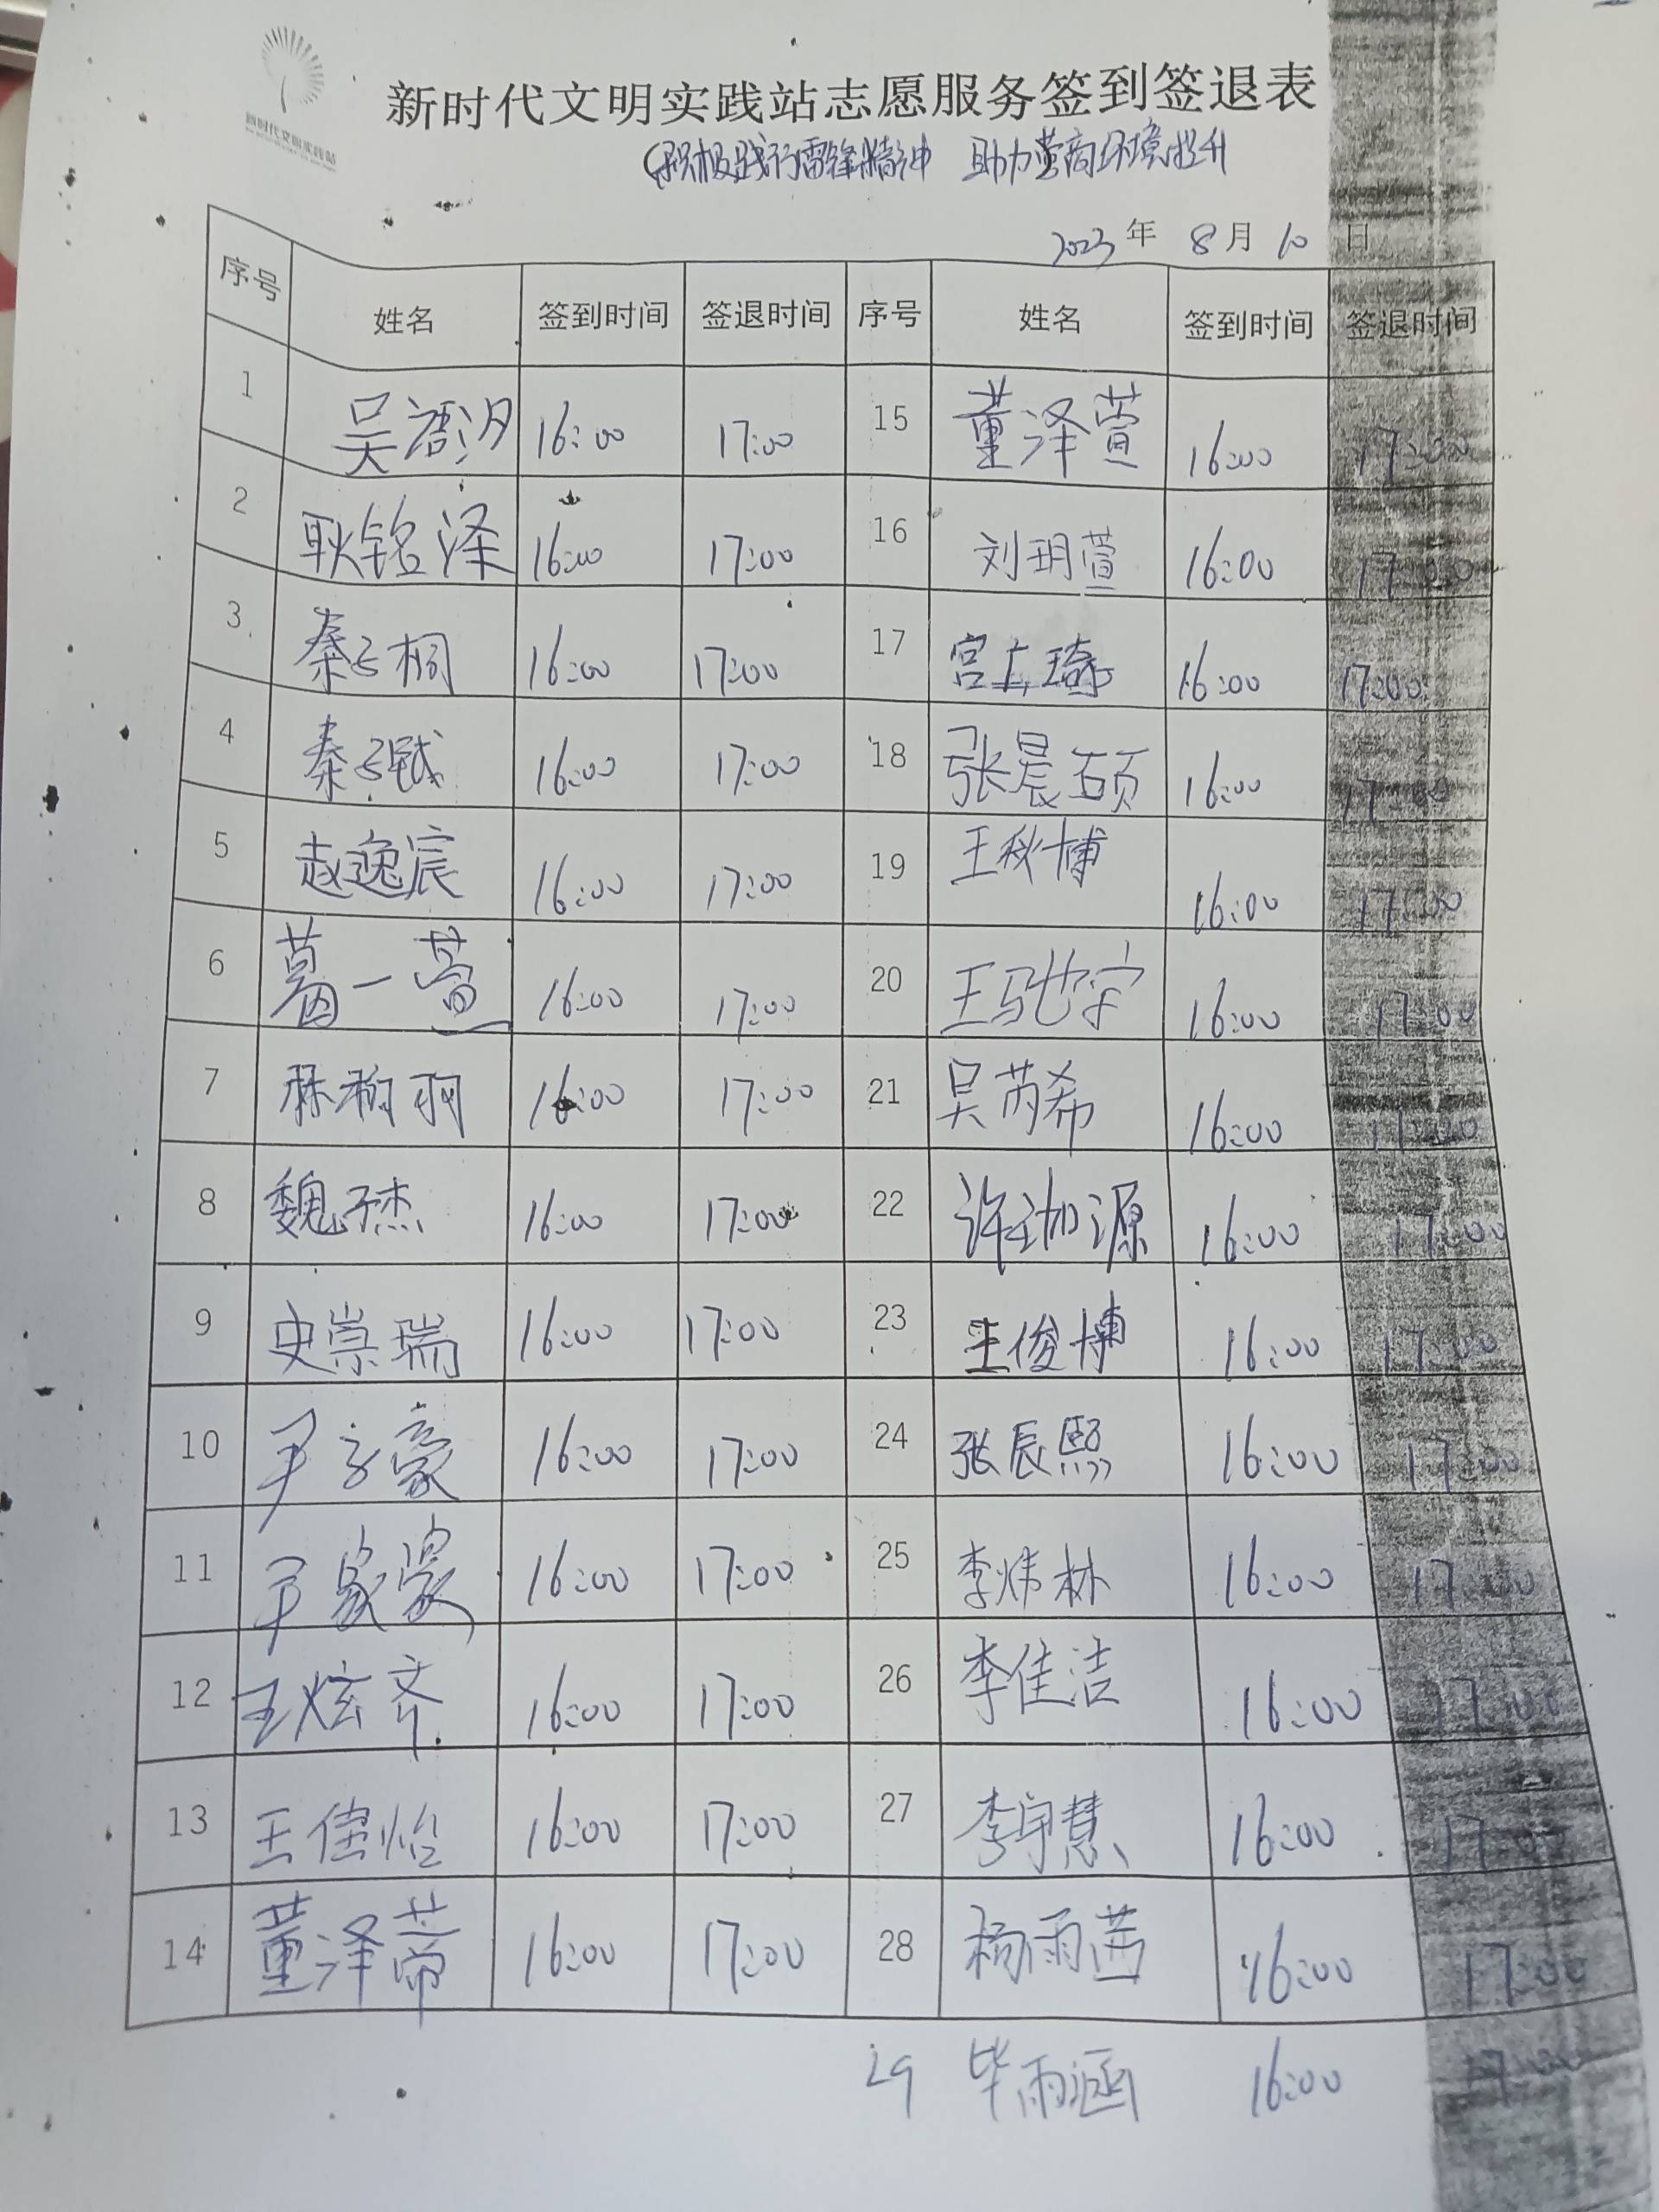 新时代文明实践站
新时代文明实践站志愿服务签到签退表
(积极践行雷锋精神 助力营商环境提升
2023年 8月 10日
序号 姓名 签到时间 签退时间 序号 姓名 签到时间 签退时间
1 吴语汐 16:00 17:00 15 董泽萱 16:00 17:00
2 耿铭泽 16:00 17:00 16 刘玥萱 16:00 17:00
3 秦子桐 16:00 17:00 17 宫上琦 16:00 17:00
4 秦子 16:00 17:00 18 张晨硕 16:00 17:00
5 赵逸宸 16:00 17:00 19 王秋博 16:00 17:00
6 葛一萱 16:00 17:00 20 王驰宇 16:00 17:00
7 16:00 17:00 21 吴芮希 16:00 17:00
8 魏子杰 16:00 17:00 22 许珈源 16:00 17:00
9 史崇瑞 16:00 17:00 23 王俊博 16:00 17:00
10 尹子豪 16:00 17:00 24 张辰熙 16:00 17:00
11 尹家豪 16:00 17:00 25 李炜林 16:00 17:00
12 王炫齐 16:00 17:00 26 李佳洁 16:00 17:00
13 王佳怡 16:00 17:00 27 李宇慧 16:00 17:00
14 董泽 16:00 17:00 28 杨雨茜 16:00 17:00
29 毕雨涵 16:00 17:00